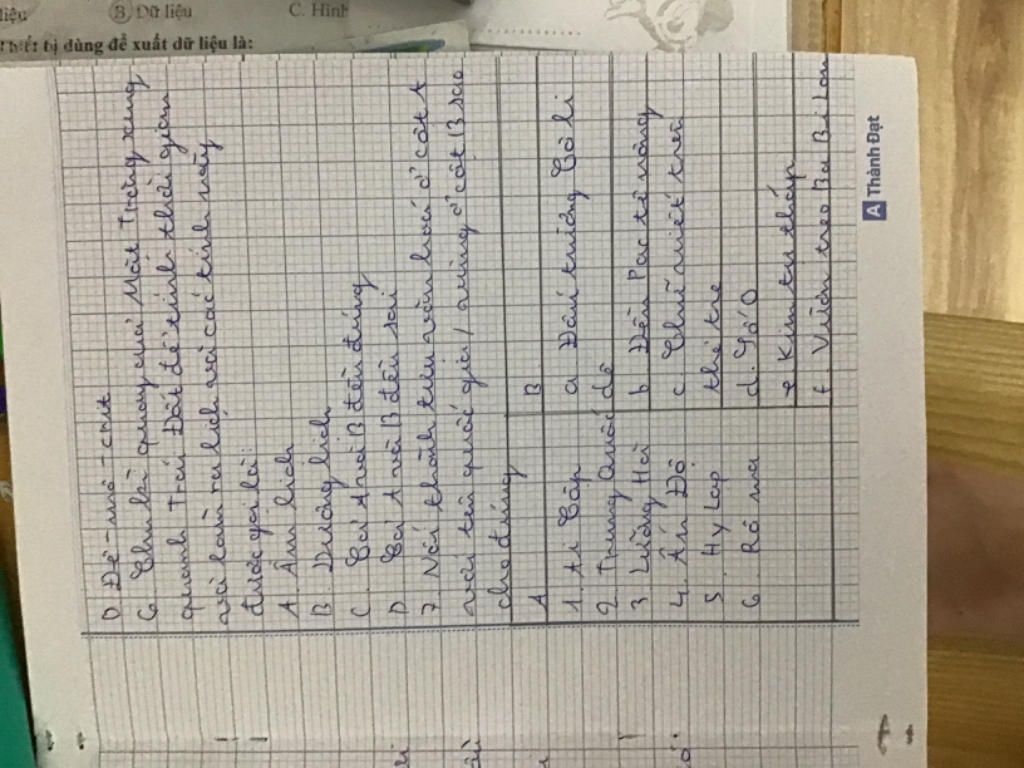 liệu
B Dữ liệu
C. Hình
Thiết bị dùng để xuất dữ liệu là:
D Đê-mô-crit
6. Chu kì quay của Mặt Trăng xung
quanh Trái Đất để tính thời gian
và làm ra lịch và các tính này
được gọi là:
A. Âm lịch
B. Dương lịch
C. Cả A và B đều đúng
D. Cả A và B đều sai
7. Nối thành tựu văn hoá ở cột t
với tên quốc gia / vùng ở cột B sao
cho đúng
A
B
1. Ai Cập
a Đấu trường Cô li
dê
2. Trung Quốc
b Đền Pac tê nông
3 Lưỡng Hà
c Chữ viết trên
thẻ tre
4. Ấn Độ
d. Số 0
5. Hy Lạp
e Kim tự tháp
6. Rô ma
f. Vườn treo Ba Bi Lon
A Thành Đạt